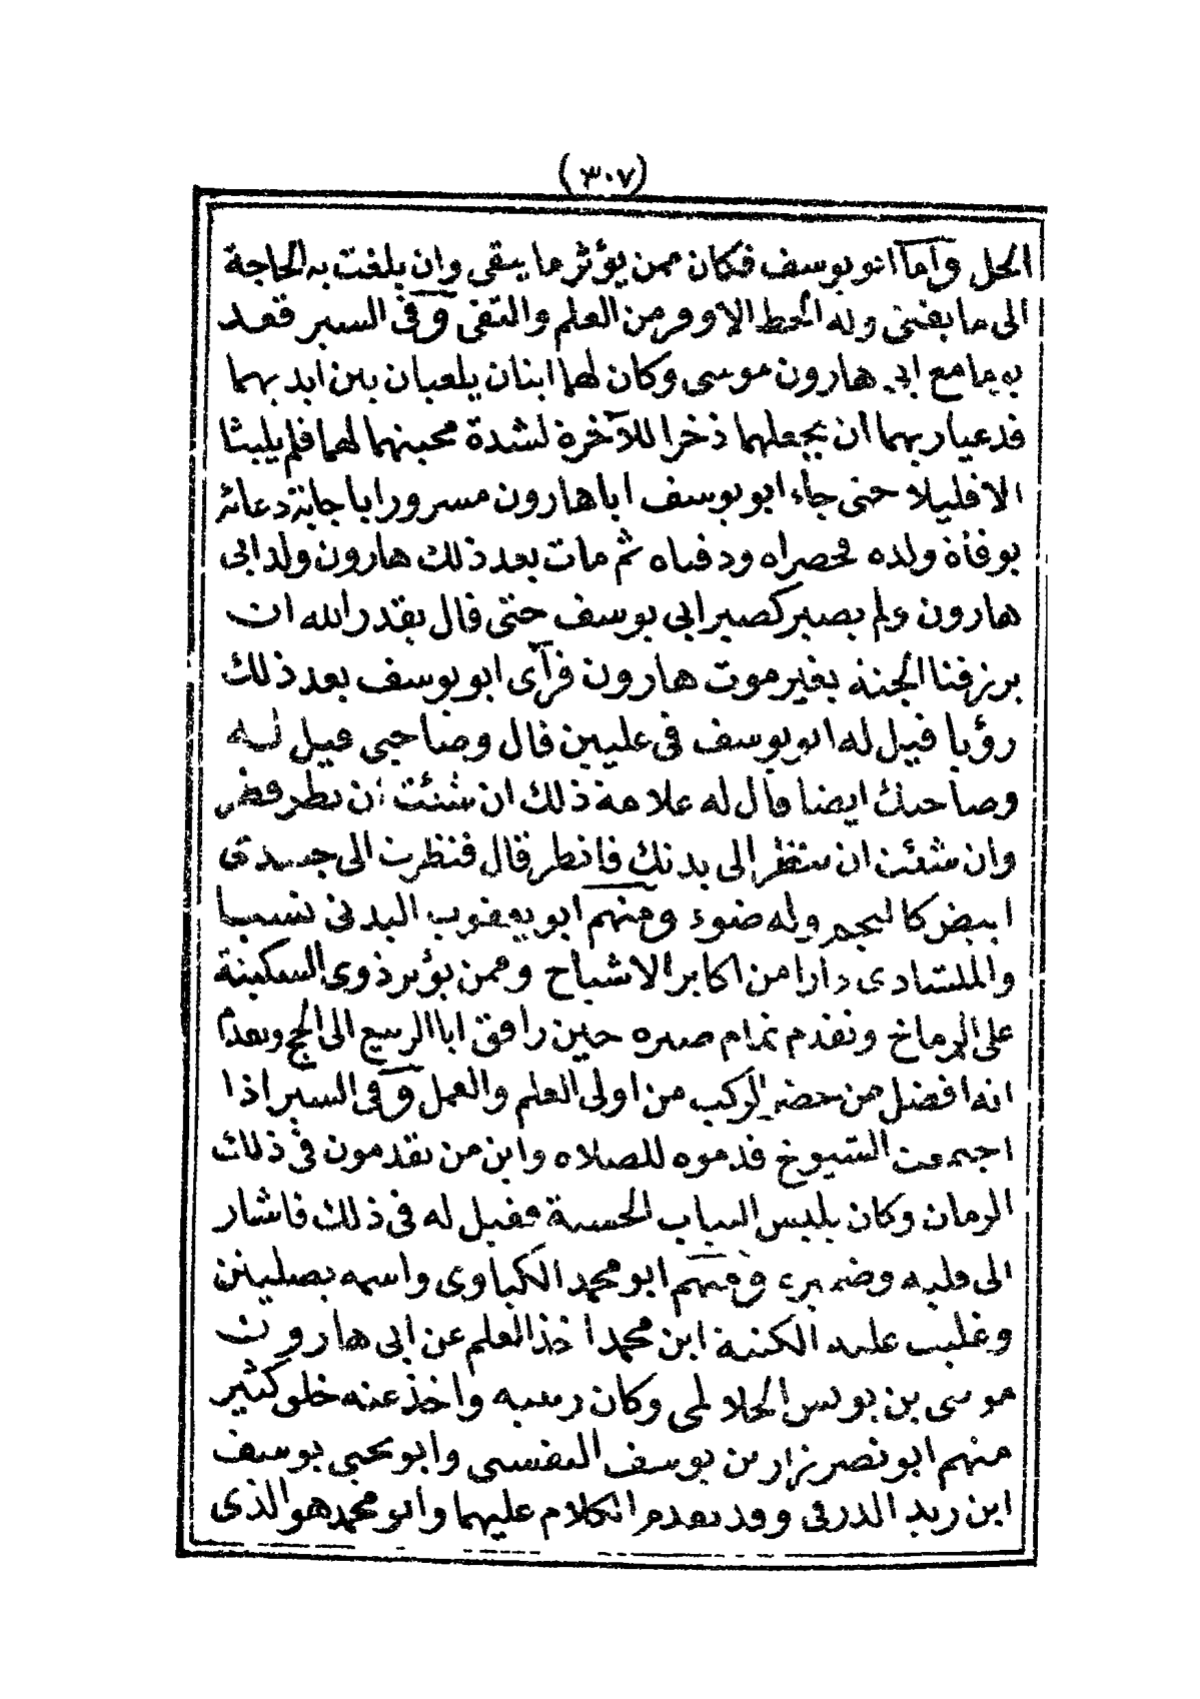 (٣٠٧)
الحل وأما ابو يوسف فكان ممن يؤثر ما يبقى وان بلغت به الحاجة
الى ما يفنى وله الحظ الاوفر من العلم والتقى وفى السير قعد
بجامع ابى هارون موسى وكان لهما ابنان يلعبان بين ايديهما
فدعيا ربهما ان يجعلهما ذخرا للآخرة لشدة محبتهما لهما فلم يلبثا
الا قليلا حتى جاء ابو يوسف ابا هارون مسرورا باجابة دعائه
بوفاة ولده فحضراه ودفناه ثم مات بعد ذلك هارون ولد ابى
هارون ولم يصبر كصبر ابى يوسف حتى قال يقدر الله ان
يرزقنا الجنة بغير موت هارون فرآى ابو يوسف بعد ذلك
رؤيا قيل له ابو يوسف فى عليين قال وصاحبى قيل له
وصاحبك ايضا قال له علامة ذلك ان شئت ان تنظر فانظر
وان شئت ان تنظر الى بدنك فانظر قال فنظرت الى جسدى
ابيض كالنجم وله ضوء ومنهم ابو يعقوب البدنى نسبا
والملتشادى دارا من اكابر الاشياخ وممن يؤثر ذوى السكينة
على الرماخ وتقدم تمام صبره حين رافق ابا الربيع الى الحج وتقدم
انه افضل من حضر الركب من اولى العلم والعمل وفى السير اذا
اجتمعت الشيوخ قدموه للصلاه واين من يقدمون فى ذلك
الزمان وكان يلبس الثياب الحسنة فقيل له فى ذلك فاشار
الى قلبه وضميره ومنهم ابو محمد الكباوى واسمه يصليتن
وغلبت عليه الكنية ابن محمد اخذ العلم عن ابى هارون
موسى بن يونس الجلالمى وكان ربيبه واخذ عنه خلق كثير
منهم ابو نصر زار بن يوسف التفستى وابو يحيى يوسف
ابن زيد الدرفى وقد تقدم الكلام عليهما وابو محمد هو الذى